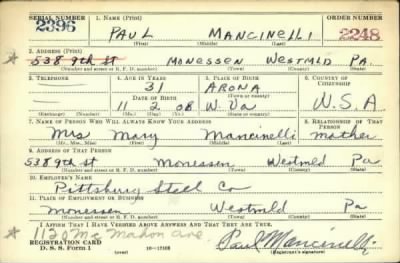 SERIAL NUMBER 1. NAME (Print) ORDER NUMBER
2396 PAUL MANCINELLI 2248
(First) (Middle) (Last)
2. ADDRESS (Print)
538 9th St MONESSEN WESTMLD PA.
(Number and street or R. F. D. number) (Town) (County) (State)
3. TELEPHONE 4. AGE IN YEARS 5. PLACE OF BIRTH 6. COUNTRY OF CITIZENSHIP
31 ARONA
DATE OF BIRTH (Town or county)
11 2 08 W. Va U.S.A
(Exchange) (Number) (Mo.) (Day) (Yr.) (State or country)
7. NAME OF PERSON WHO WILL ALWAYS KNOW YOUR ADDRESS 8. RELATIONSHIP OF THAT PERSON
Mrs Mary Mancinelli mother
(Mr., Mrs., Miss) (First) (Middle) (Last)
9. ADDRESS OF THAT PERSON
538 9th st Monessen Westmld Pa
(Number and street or R. F. D. number) (Town) (County) (State)
10. EMPLOYER'S NAME
Pittsburg Steel Co
11. PLACE OF EMPLOYMENT OR BUSINESS
monessen Westmld Pa
(Number and street or R. F. D. number) (Town) (County) (State)
I AFFIRM THAT I HAVE VERIFIED ABOVE ANSWERS AND THAT THEY ARE TRUE.
1120 McMahon Ave.
REGISTRATION CARD
D. S. S. Form 1 (over) Paul Mancinelli
(Registrant's signature)